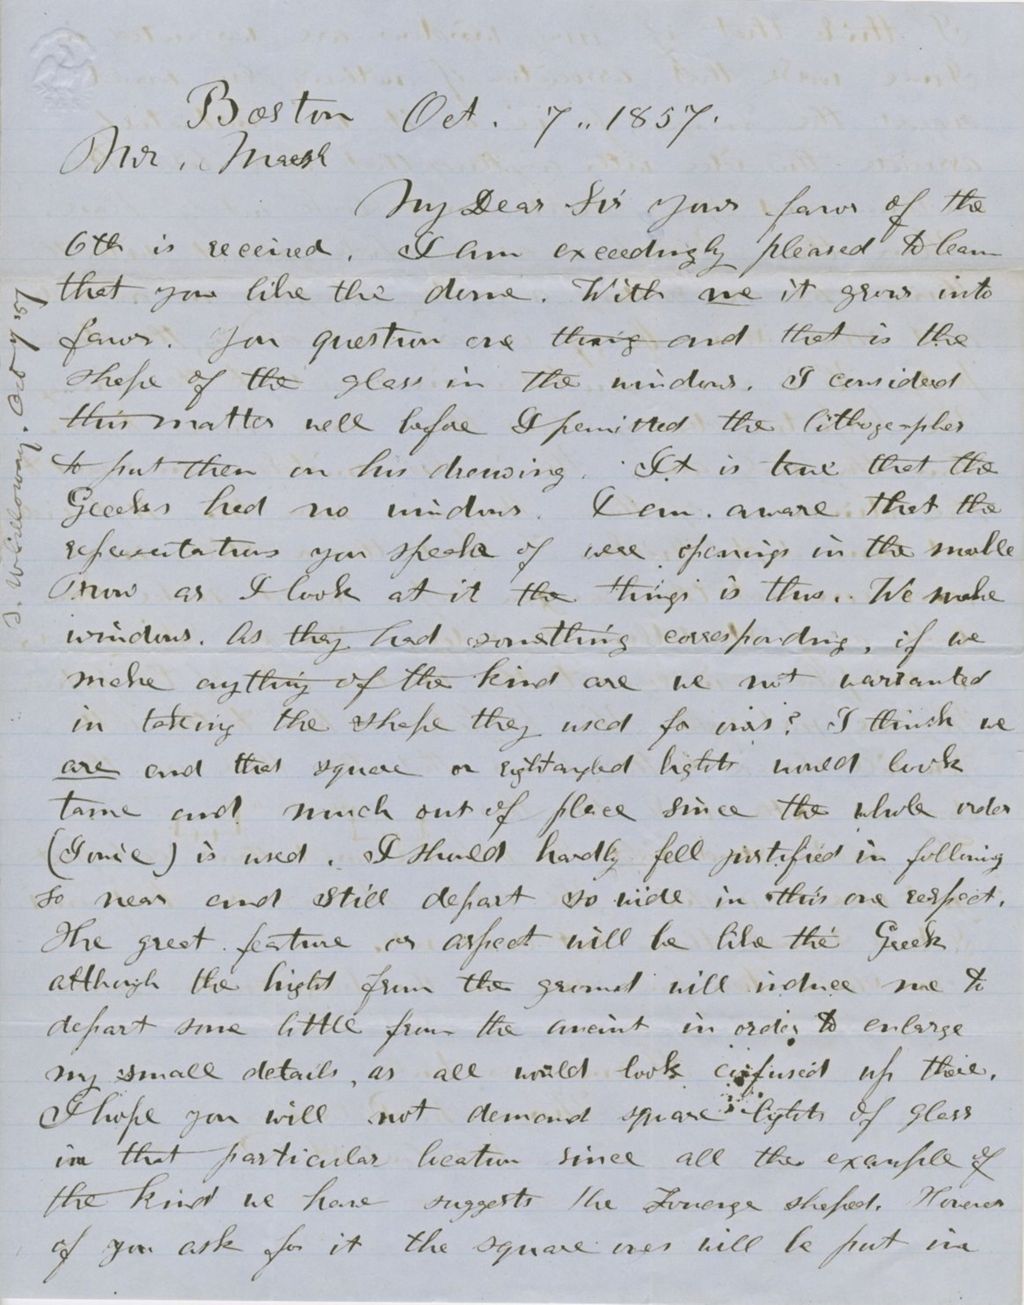 Boston Oct. 7.. 1857.
Mr. Marsh
My Dear Sir your favor of the
6th is received. I am exceedingly pleased to learn
that you like the dome. With me it grows into
favor. You question one thing and that is the
shape of the glass in the windows. I considerd
this matter well before I permitted the lithographer
to put them in his drawing. It is true that the
Greeks had no windows. I am aware that the
representations you speak of were openings in the marble
now as I look at it the things is thus. We make
windows. As they had something corresponding, if we
make anything of the kind are we not warranted
in taking the shape they used for ours? I think we
are and that square or rightangled lights would look
tame and much out of place since the whole order
(Ionic) is used. I should hardly fell justified in following
so near and still depart so wide in this one respect.
The great feature or aspect will be like the Greek
although the hight from the ground will induce me to
depart some little from the ancint in order to enlarge
my small details, as all would look confused up their.
I hope you will not demand square lights of glass
in that particular location since all the example of
the kind we have suggests the Lozenge shaped. However
if you ask for it the square ones will be put in
S. Willoway. Oct 7/57